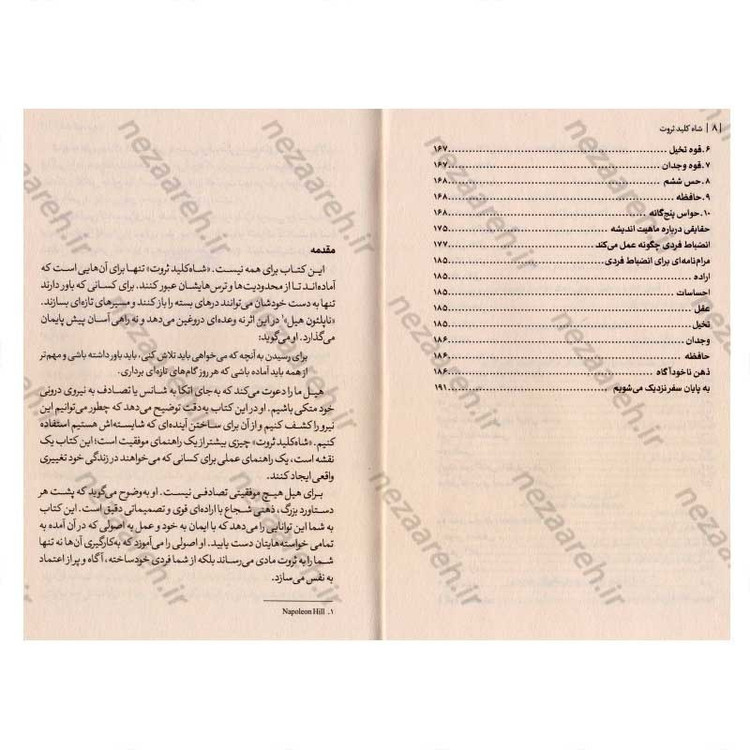 | ۸ | شاه کلید ثروت
۶. قوه تخیل ۱۶۷
۷. قوه وجدان ۱۶۷
۸. حس ششم ۱۶۸
۹. حافظه ۱۶۸
۱۰. حواس پنج‌گانه ۱۶۸
حقایقی درباره ماهیت اندیشه ۱۷۵
انضباط فردی چگونه عمل می‌کند ۱۷۷
مرام‌نامه‌ای برای انضباط فردی ۱۸۵
اراده ۱۸۵
احساسات ۱۸۵
عقل ۱۸۵
تخیل ۱۸۵
وجدان ۱۸۶
حافظه ۱۸۶
ذهن ناخودآگاه ۱۸۶
به پایان سفر نزدیک می‌شویم ۱۹۱
مقدمه
این کتاب برای همه نیست. «شاه‌کلید ثروت» تنها برای آن‌هایی است که
آماده‌اند تا از محدودیت‌ها و ترس‌هایشان عبور کنند. برای کسانی که باور دارند
تنها به دست خودشان می‌توانند درهای بسته را باز کنند و مسیرهای تازه‌ای بسازند.
«ناپلئون هیل»۱ در این اثر نه وعده‌ای دروغین می‌دهد و نه راهی آسان پیش پایمان
می‌گذارد. او می‌گوید:
برای رسیدن به آنچه که می‌خواهی باید تلاش کنی، باید باور داشته باشی و مهم‌تر
از همه باید آماده باشی که هر روز گام‌های تازه‌ای برداری.
هیل ما را دعوت می‌کند که به‌جای اتکا به شانس یا تصادف به نیروی درونی
خود متکی باشیم. او در این کتاب به‌دقت توضیح می‌دهد که چطور می‌توانیم این
نیرو را کشف کنیم و از آن برای ساختن آینده‌ای که شایسته‌اش هستیم استفاده
کنیم. «شاه‌کلید ثروت» چیزی بیشتر از یک راهنمای موفقیت است؛ این کتاب یک
نقشه است، یک راهنمای عملی برای کسانی که می‌خواهند در زندگی خود تغییری
واقعی ایجاد کنند.
برای هیل هیچ موفقیتی تصادفی نیست. او به‌وضوح می‌گوید که پشت هر
دستاورد بزرگ، ذهنی شجاع با اراده‌ای قوی و تصمیماتی دقیق است. این کتاب
به شما این توانایی را می‌دهد که با ایمان به خود و عمل به اصولی که در آن آمده به
تمامی خواسته‌هایتان دست یابید. او اصولی را می‌آموزد که به‌کارگیری آن‌ها نه تنها
شما را به ثروت مادی می‌رساند بلکه از شما فردی خودساخته، آگاه و پر از اعتماد
به نفس می‌سازد.
۱. Napoleon Hill
nezaareh.ir
nezaareh.ir
nezaareh.ir
nezaareh.ir
nezaareh.ir
nezaareh.ir
nezaareh.ir
nezaareh.ir
nezaareh.ir